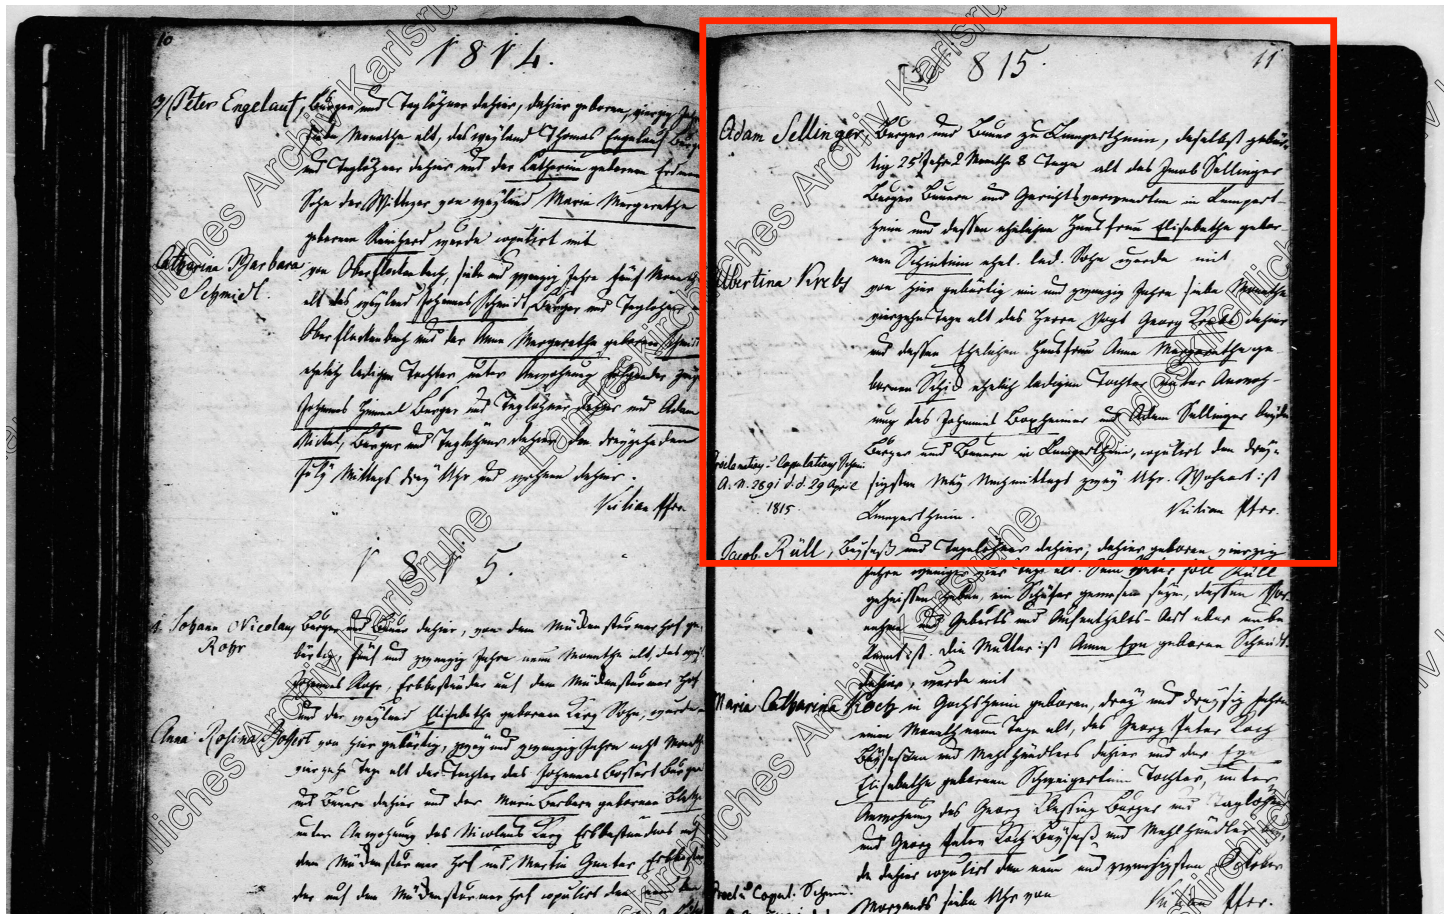 10
1814.
3/ Peter Engelauf, Bürger und Taglöhner dahier, dahier geboren, vierzig Jahr
sieben Monathe alt, des weyland Thomas Engelauf Bürger
und Taglöhner dahier und der Catharina geborenen Erdmann
Sohn der Wittwer von weyland Maria Margaretha
geborenen Reinhard wurde copulirt mit
Catharina Barbara Schmidt.
von Oberflockenbach, sieben und zwanzig Jahre fünf Monathe
alt des weyland Johannes Schmidt Bürger und Taglöhner
Oberflockenbach und der Anna Margaretha geborenen Schmidt
ehelich ledigen Tochter, unter Anwohnung folgender Zeugen
Johannes Bürger und Taglöhner dahier und Adam
Nickel, Bürger und Taglöhner dahier den dreyzehnden
July Mittags drey Uhr und wohnen dahier.
Pfrr.
1815.
1. Johann Nicolaus Rohr
Bürger und Bauer dahier, von dem hof ge-
bürtig, fünf und zwanzig Jahre neun Monathe alt, des
Johannes Rohr, Erbbeständer auf dem Hof
und der weyland Elisabetha geborenen Sohn, wurde
Anna Rosina Bossert von hier gebürtig, zwey und zwanzig Jahre acht Monathe
vierzehn Tage alt der Tochter des Johannes Bossert Bürger
und Bauern dahier und der Maria Barbara geborenen
unter Anwohnung des Nicolaus Erbbeständers auf
dem Hof und Martin Erbbeständer
der auf dem hof copulirt den
11
1815.
Adam Sellinger Bürger und Bauer zu Lampertheim, daselbst gebür-
tig 25 Jahr 2 Monathe 8 Tage alt des Jacob Sellinger
Bürger Bauern und Gerichtsverwandten in Lampert-
heim und dessen ehelichen Hausfrau Elisabetha gebor-
nen ehel. led. Sohn wurde mit
Albertina Krebs
von hier gebürtig ein und zwanzig Jahre sieben Monathe
vierzehn Tage alt des Herrn Vogt Georg Krebs dahier
und dessen Ehelichen Hausfrau Anna Margaretha ge-
bornen ehelich ledigen Tochter unter Anwoh-
nung des Johannes Boxheimer und Adam Sellinger beyde
Bürger und Bauern in Lampertheim, copulirt den drey-
sigsten May Nachmittags zwey Uhr. Wohnort ist
Lampertheim.
Pfrr.
Proclamations- Copulations Schein
A. N. 2891 d.d. 29 April
1815.
Jacob Rüll, Beysaß und Tagelöhner dahier, dahier geboren vierzig
Jahre weniger vier Tage alt. Sein Vater soll Rüll
geheissen haben, ein Schäfer gewesen seyn, dessen Vor-
nahme und Geburts und Aufenthalts-Ort aber unbe-
kannt ist. Die Mutter ist Anna Eva geboren
dahier, wurde mit
Maria Catharina Koch in Gochsheim geboren, drey und dreysig Jahre
neun Monath neun Tage alt, des Georg Peter Koch
Beysaßen und Mehlhändlers dahier und der Eva
Elisabetha geborenen Tochter, unter
Anwohnung des Georg Bürger und Taglöhner
und Georg Peter Koch Beysaß und Mehlhändler
dahier copulirt den neun und zwanzigsten October
Morgends sieben Uhr
Pfrr.
Procl. Copul. Schein
Landeskirchliches Archiv Karlsruhe